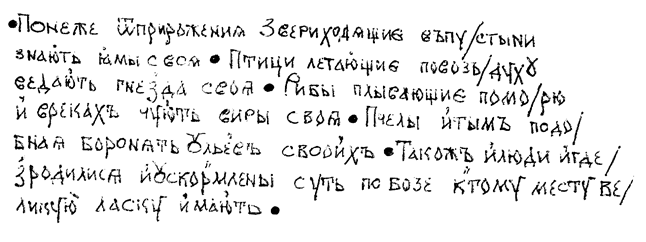 •Понеже ѿприрожения звериходящие въпу/стыни
знають ꙗмы своꙗ • Птици летающие повозъ/духꙋ
ведають гнезда своꙗ • Рибы плывающие помо/рю
й вреках чують виры своꙗ • Пчелы йтымъ подо/
бнаꙗ боронять ꙋльевъ своихъ • Такожъ йлюди йгде/
зродилисꙗ йꙋскормлены суть побозе ктому месту ве/
ликую ласку ймають •